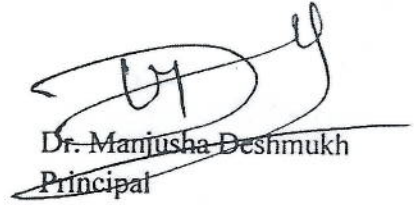 Dr. Manjusha Deshmukh
Principal